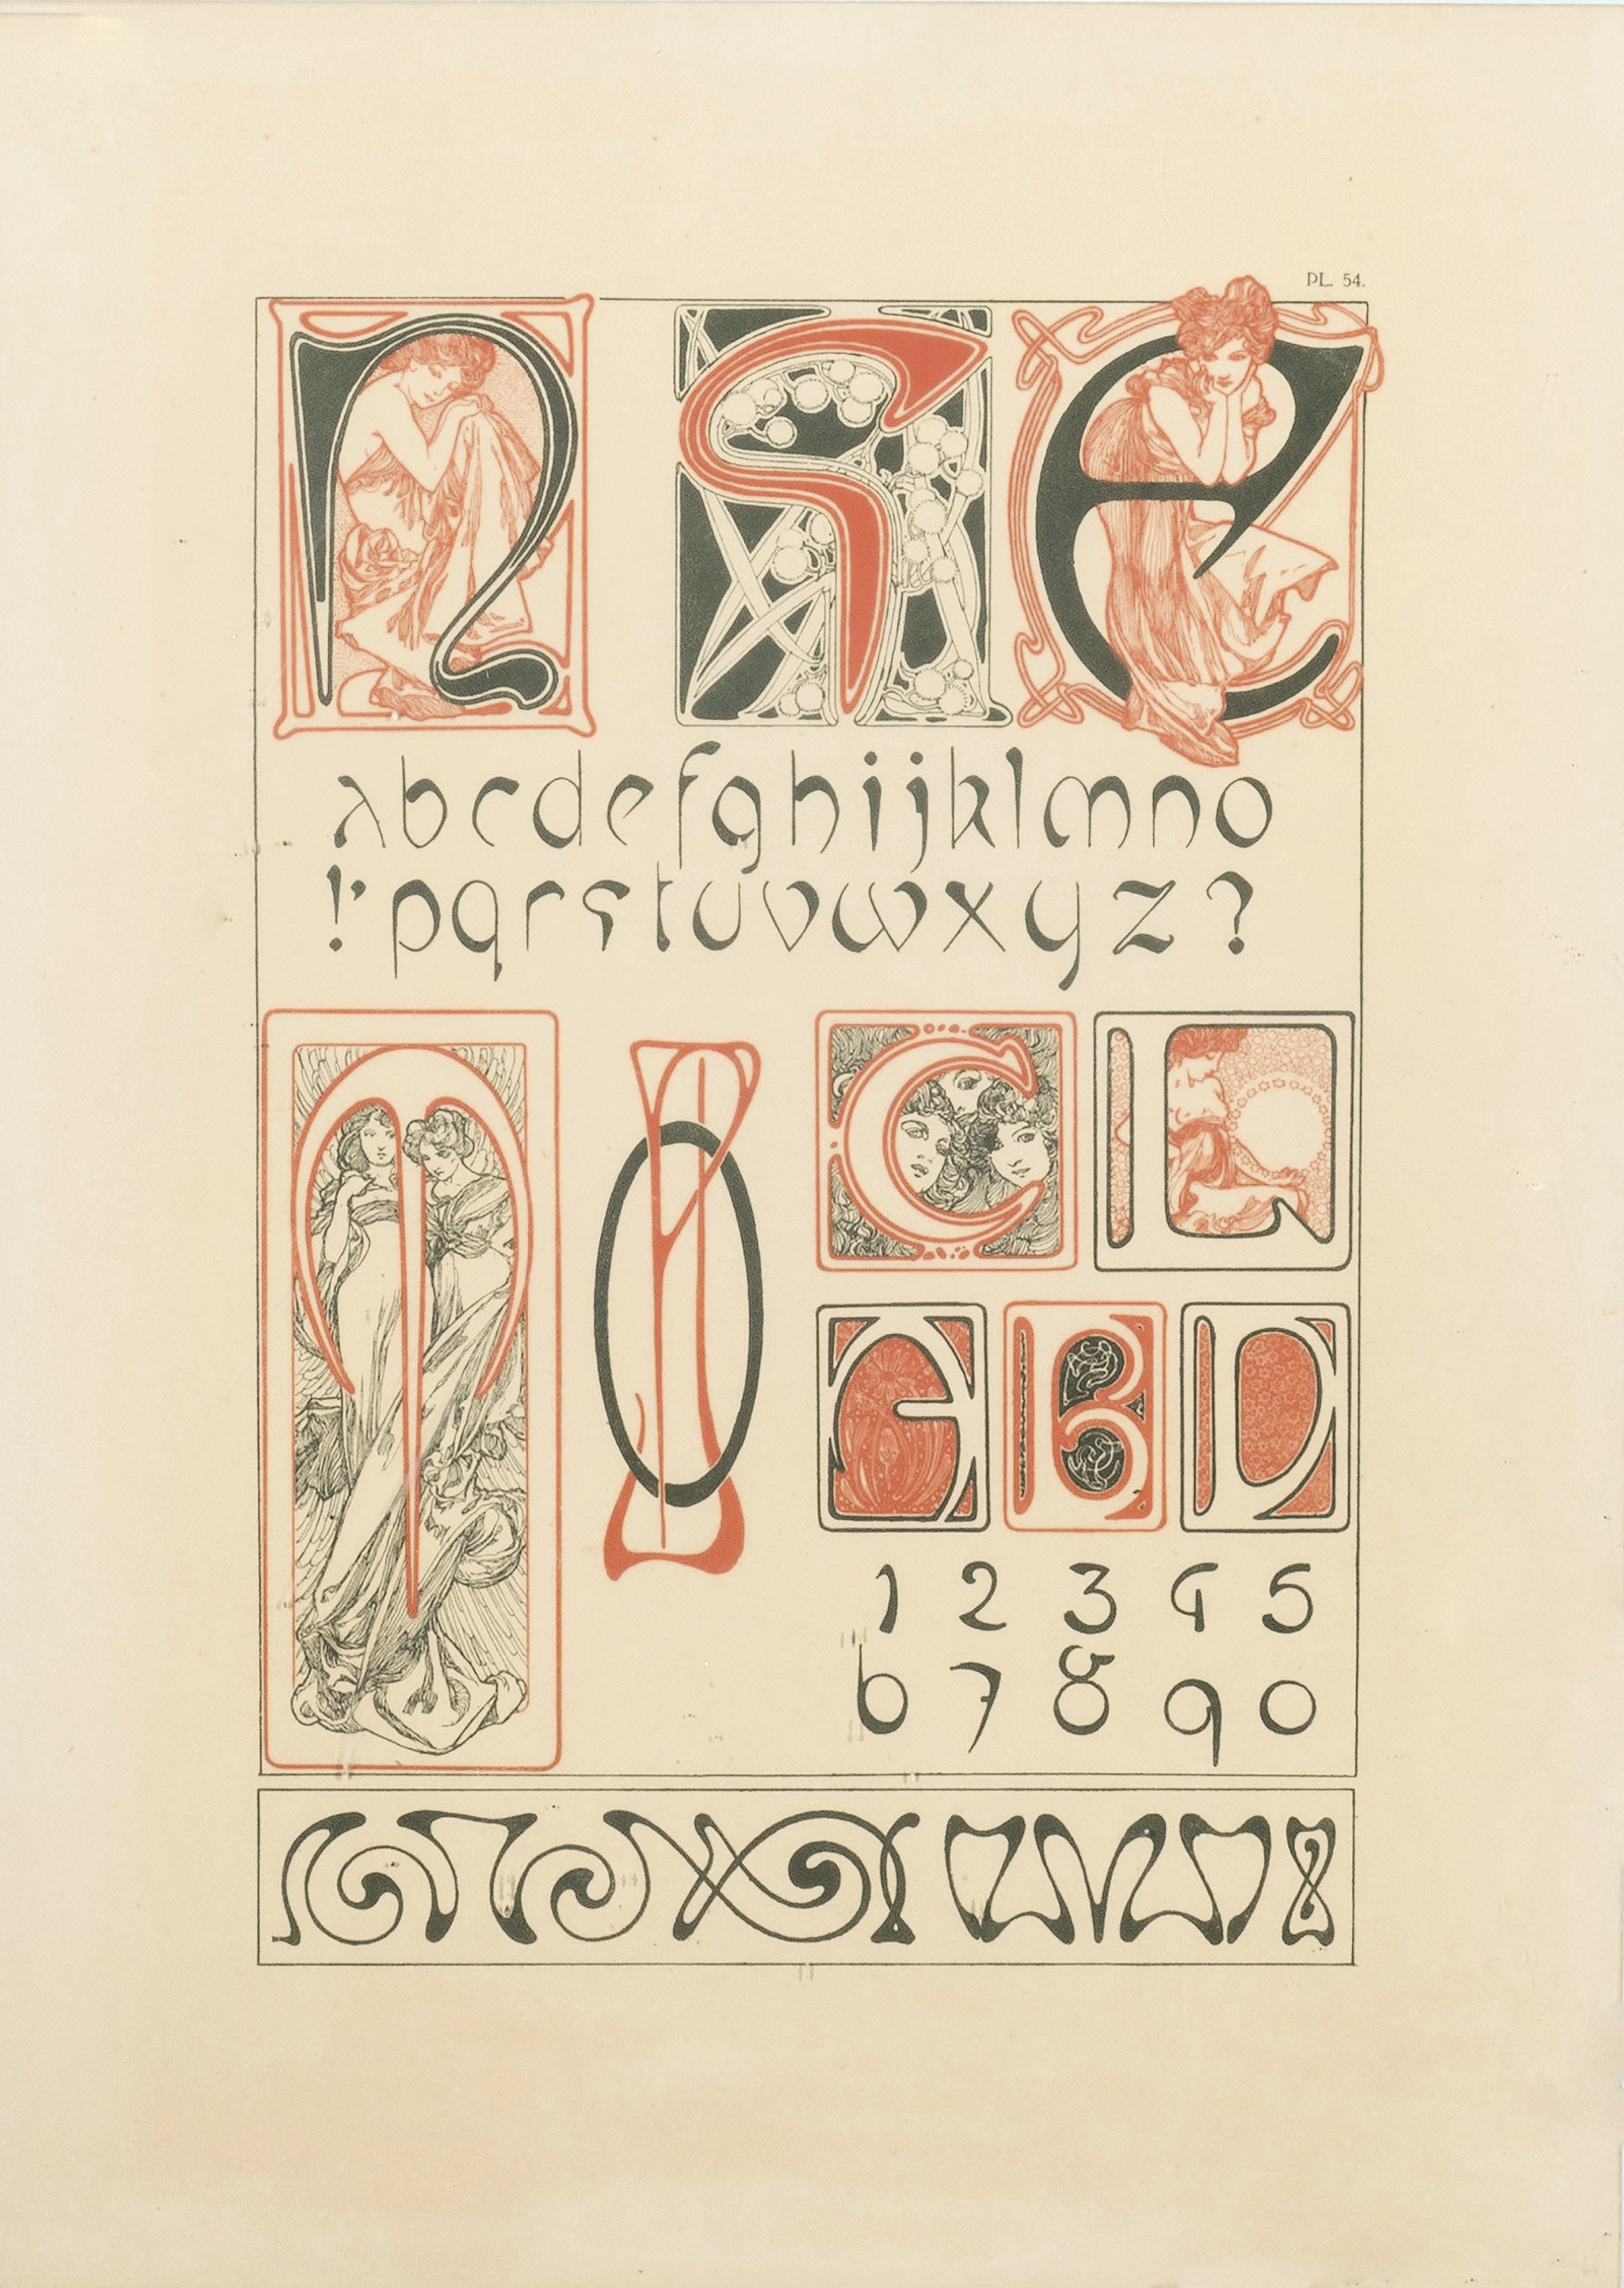 PL. 54.
n s e
abcdefghijklmno
!'pqrstuvwxyz?
M
C L
A B D
1 2 3 4 5
6 7 8 9 0